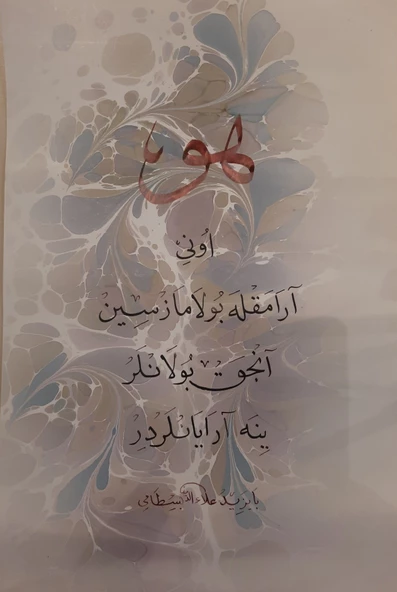 هو
اُونِی
آرَامَقْلَه بُولَامَازْسِین
آنْجَقْ بُولَانْلَرْ
یِنَه آرَایَانْلَرْدِرْ
بایَزِیدْ علاءالدّین بِسْطَامِی